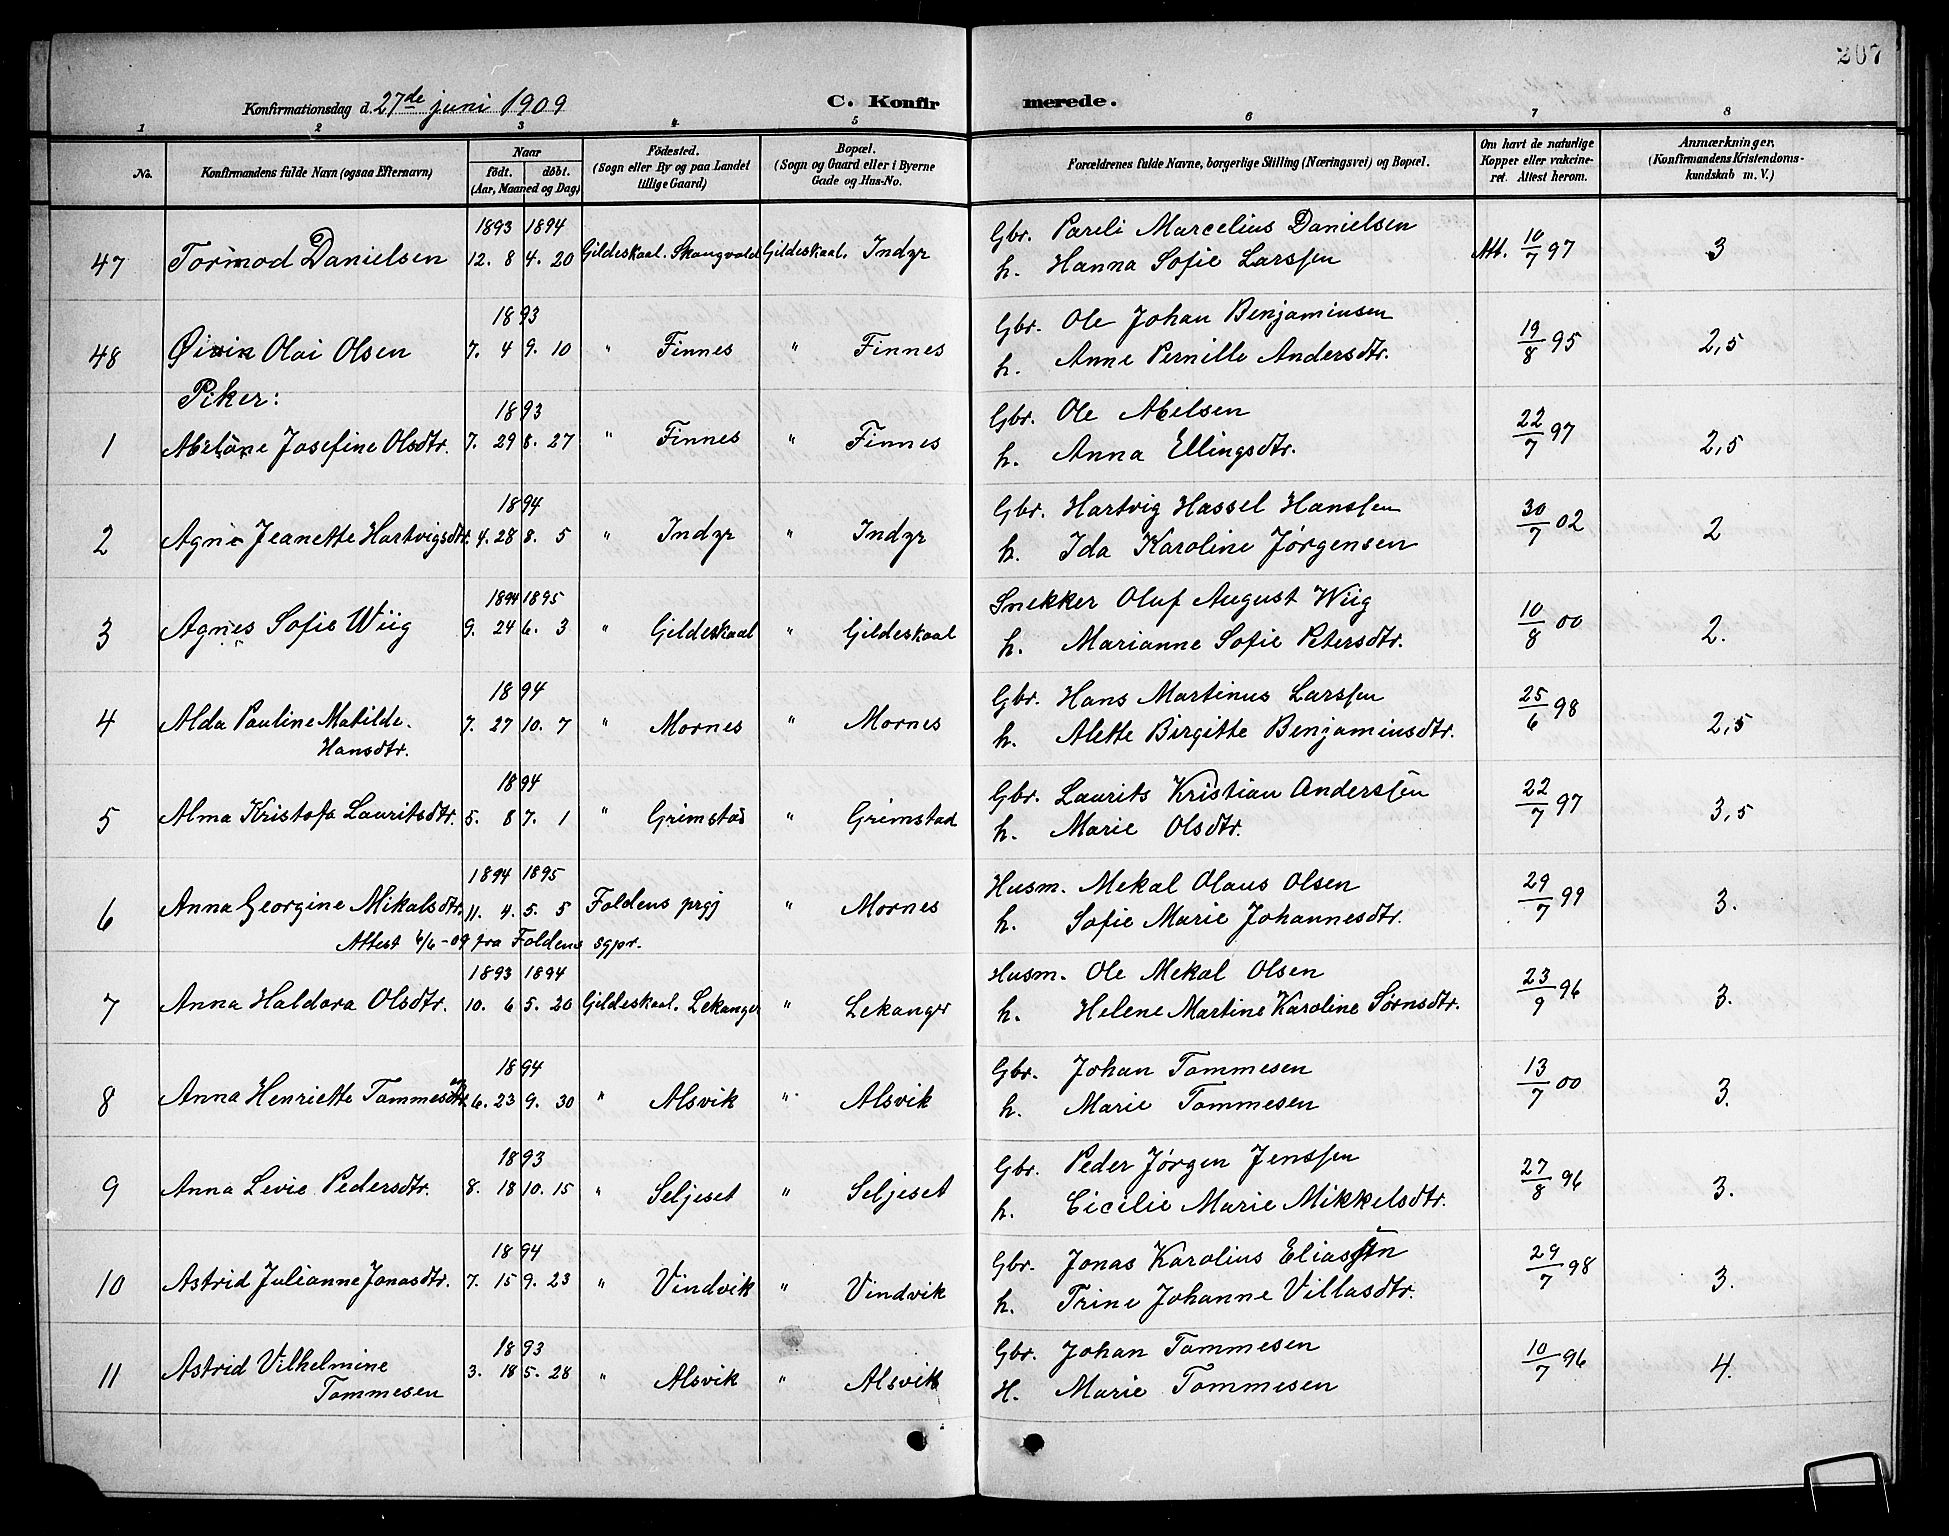 207
Konfirmationsdag d. 27de juni 1909 C. Konfirmerede.
1 2 3 4 5 6 7 8
No. Konfirmandens fulde Navn (ogsaa Efternavn) Naar født. døbt. (Aar, Maaned og Dag) Fødested. (Sogn eller By og paa Landet tillige Gaard) Bopæl. (Sogn og Gaard eller i Byerne Gade og Hus-No. Forældrenes fulde Navne, borgerlige Stilling (Næringsvei) og Bopæl. Om havt de naturlige Kopper eller vakcineret. Attest herom. Anmærkninger. (Konfirmandens Kristendomskundskab m. V.)
1893 1894 Gbr. Pareli Marcelius Danielsen
47 Tormod Danielsen 12. 8 4. 20 Gildeskaal. Skaugvold Gildeskaal. Indyr h. Hanna Sofie Larssen Att. 10/7 97 3
1893 Gbr. Ole Johan Benjaminsen
48 Øivin Olai Olsen 7. 4 9. 10 " Finnes " Finnes h. Anne Pernille Andersdtr. 19/8 95 2,5
Piker:
1893 Gbr. Ole Abelsen
1 Abelone Josefine Olsdtr. 7. 29 8. 27 " Finnes " Finnes h. Anna Ellingsdtr. 22/7 97 2,5
1894 Gbr. Hartvig Hassel Hanssen
2 Agne Jeanette Hartvigsdtr. 4. 28 8. 5 " Indyr " Indyr h. Ida Karoline Jørgensen 30/7 02 2
1894 1895 Snekker Oluf August Wiig
3 Agnes Sofie Wiig 9. 24 6. 3 " Gildeskaal " Gildeskaal h. Marianne Sofie Petersdtr. 10/8 00 2.
1894 Gbr. Hans Martinus Larssen
4 Alda Pauline Matilde 7. 27 10. 7 " Mornes " Mornes h. Alette Birgitte Benjaminsdtr. 25/6 98 2,5
Hansdtr.
1894 Gbr. Laurits Kristian Anderssen
5 Alma Kristofa Lauritsdtr. 5. 8 7. 1 " Grimstad " Grimstad h. Marie Olsdtr. 22/7 97 3,5
1894 1895 Husm. Mekal Olaus Olsen
6 Anna Georgine Mikalsdtr. 11. 4. 5. 5 Foldens prgj " Mornes h. Sofie Marie Johannesdtr. 29/7 99 3.
Attest 6/6-09 fra Foldens sgpr.
1893 1894 Husm. Ole Mekal Olsen
7 Anna Haldora Olsdtr. 10. 6 5. 20 Gildeskaal. Lekanger " Lekanger h. Helene Martine Karoline Sørnsdtr. 23/9 96 3.
1894 Gbr. Johan Tommesen
8 Anna Henriette Tommesen 6. 23 9. 30 " Alsvik " Alsvik h. Marie Tommesen 13/7 00 3.
1893 Gbr. Peder Jørgen Jenssen
9 Anna Levie Pedersdtr. 8. 18 10. 15 " Seljeset " Seljeset h. Cicilie Marie Mikkelsdtr. 27/8 96 3.
1894 Gbr. Jonas Karolius Eliassen
10 Astrid Julianne Jonasdtr. 7. 15 9. 23 " Vindvik " Vindvik h. Trine Johanne Villasdtr. 29/7 98 3.
1893 Gbr. Johan Tommesen
11 Astrid Vilhelmine 3. 18 5. 28 " Alsvik " Alsvik H. Marie Tommesen 10/7 96 4.
Tommesen